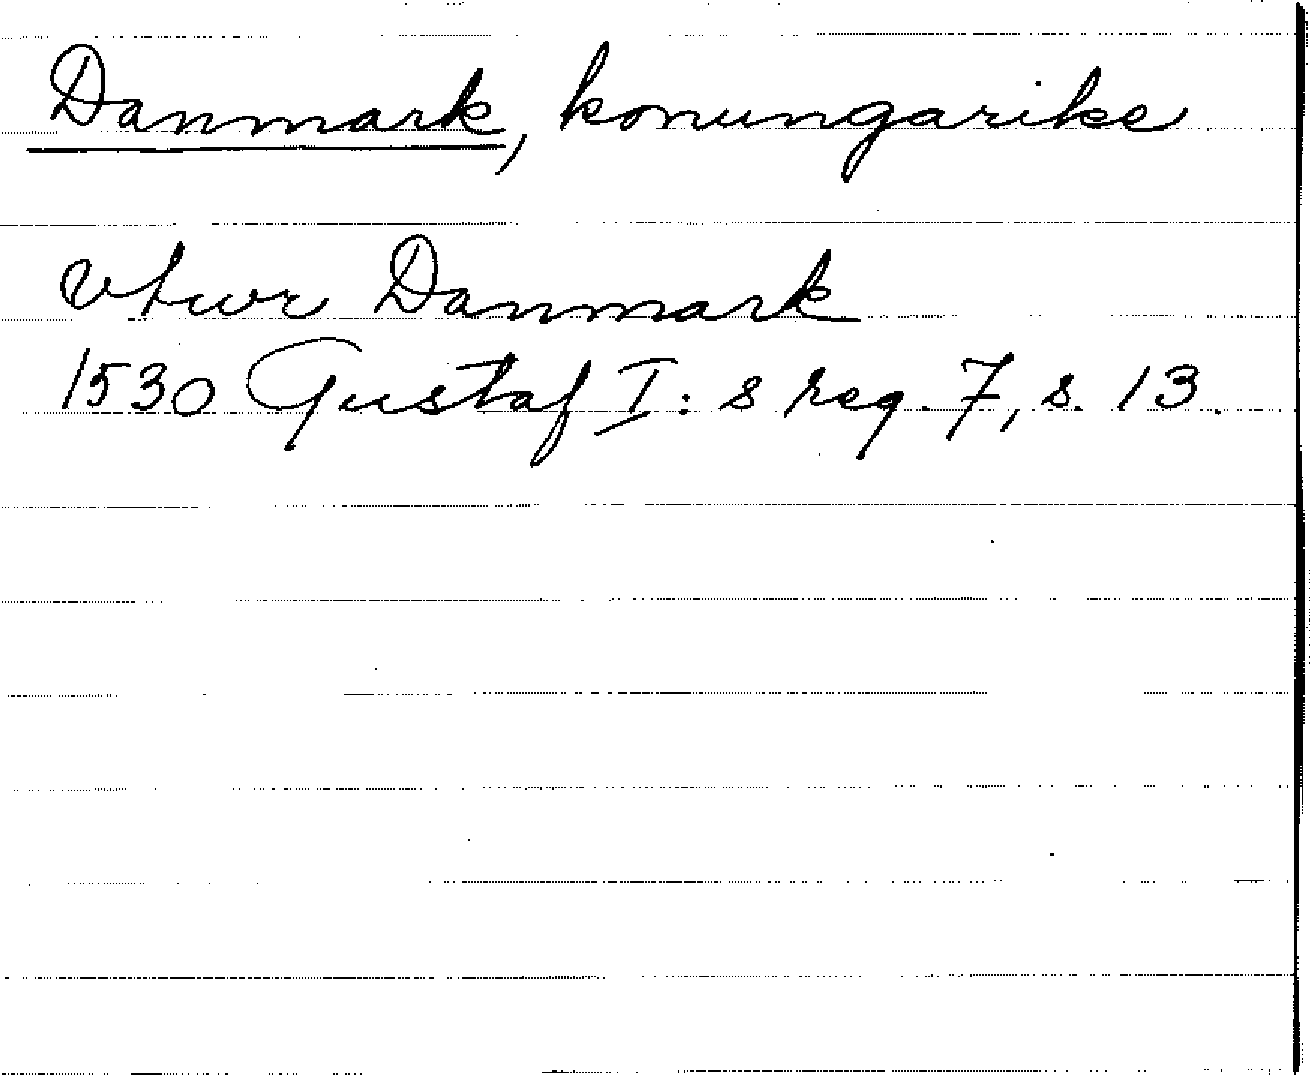 Danmark, konungarike
vtwr Danmark
1530 Gustaf I:s reg. 7, s. 13.